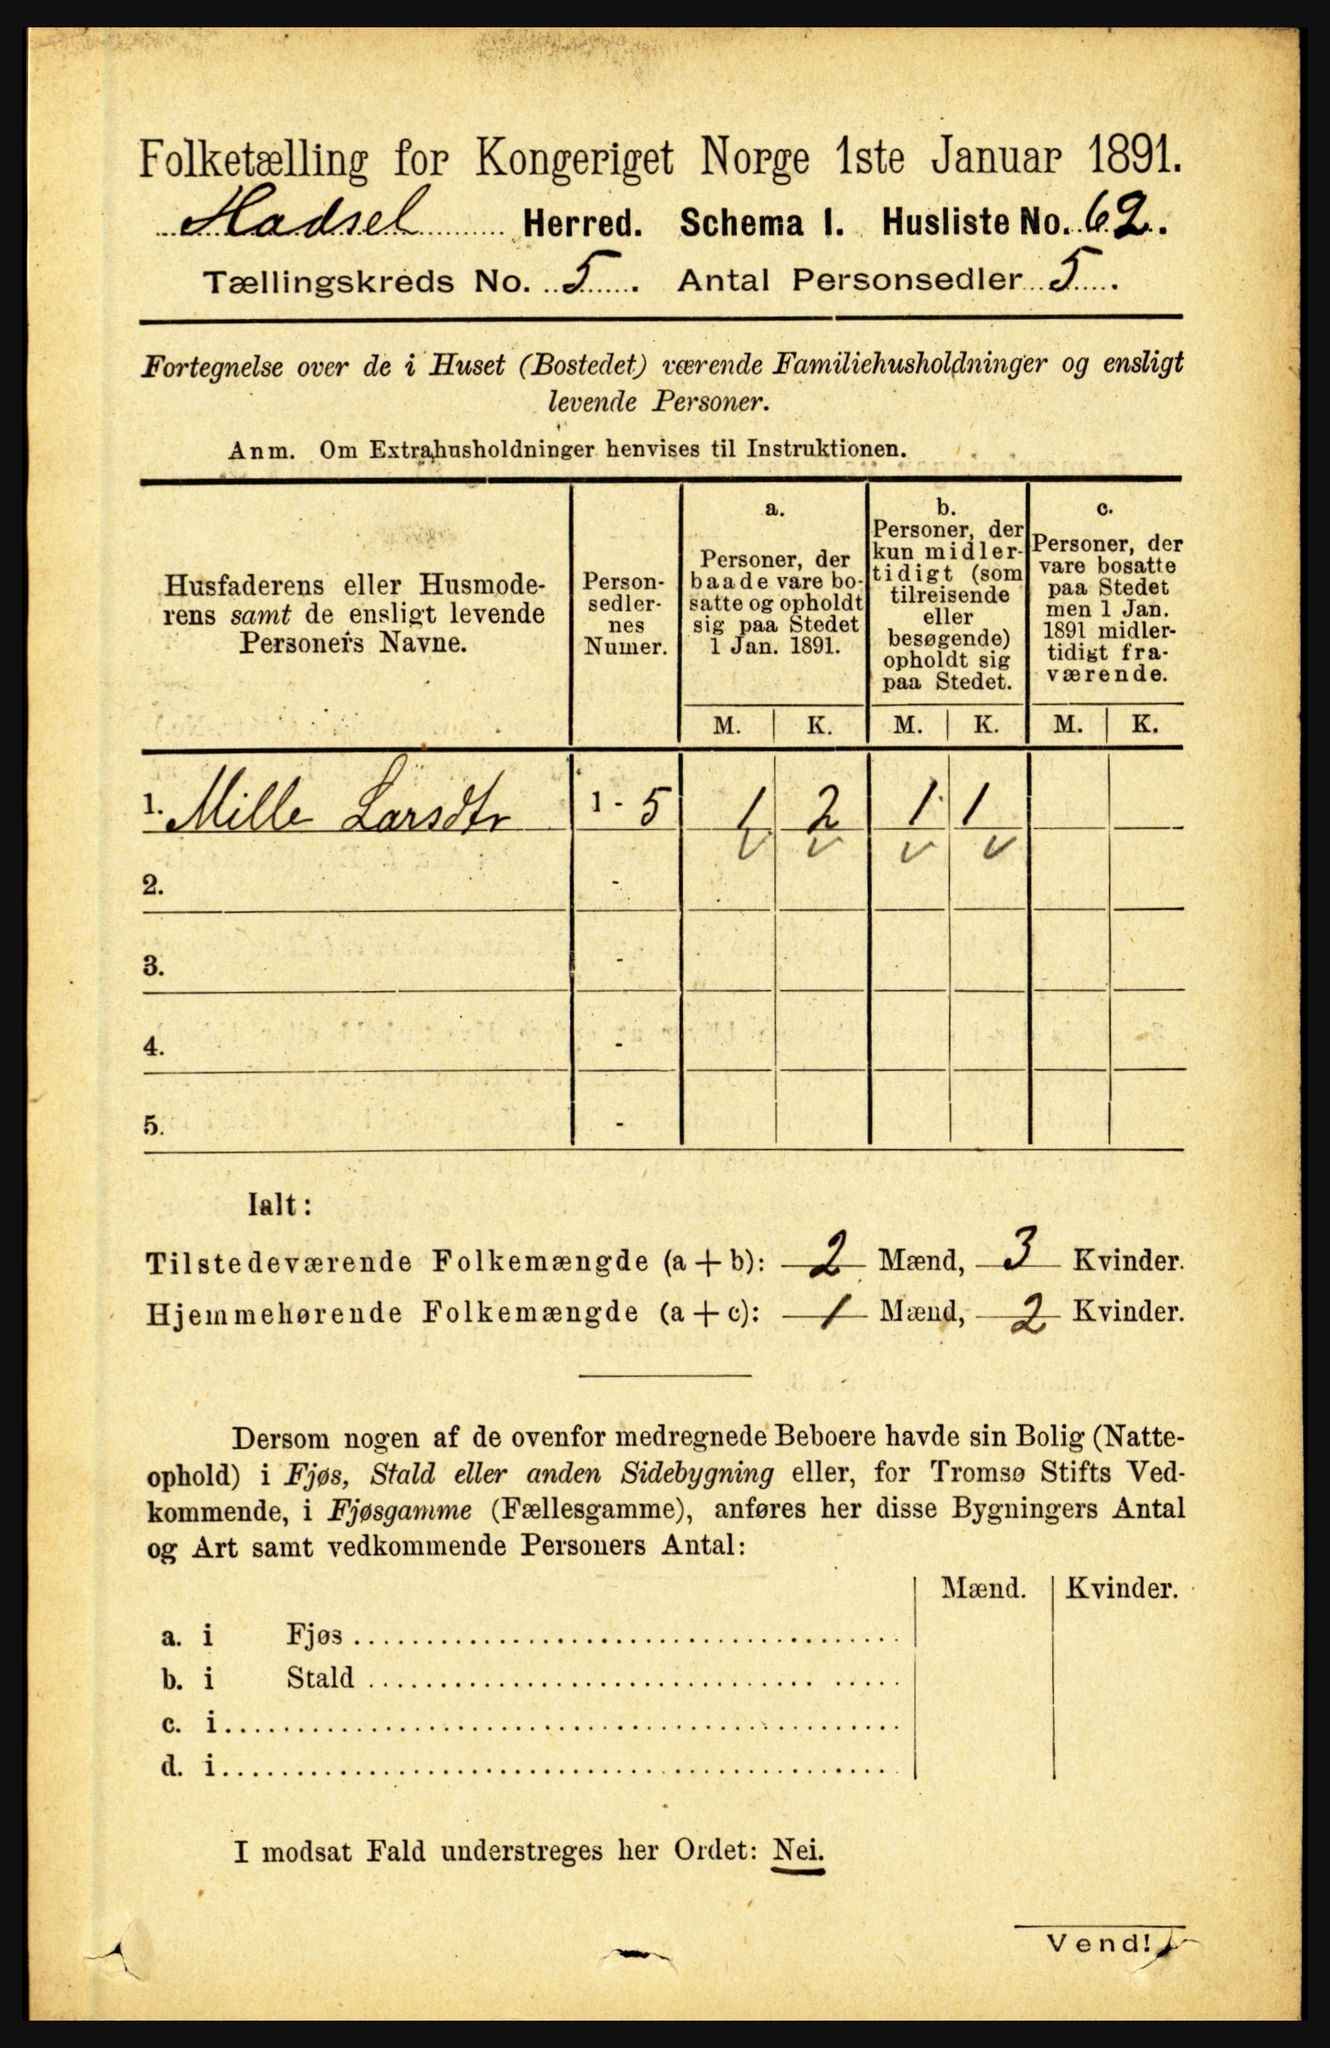 Folketælling for Kongeriget Norge 1ste Januar 1891.
Hadsel Herred. Schema I. Husliste No. 62.
Tællingskreds No. 5. Antal Personsedler 5.
Fortegnelse over de i Huset (Bostedet) værende Familiehusholdninger og ensligt
levende Personer.
Anm. Om Extrahusholdninger henvises til Instruktionen.
Husfaderens eller Husmode-
rens samt de ensligt levende
Personers Navne.
Person-
sedler-
nes
Numer.
a.
Personer, der
baade vare bo-
satte og opholdt
sig paa Stedet
1 Jan. 1891.
b.
Personer, der
kun midler-
tidigt (som
tilreisende
eller
besøgende)
opholdt sig
paa Stedet.
c.
Personer, der
vare bosatte
paa Stedet
men 1 Jan.
1891 midler-
tidigt fra-
værende.
M. K. M. K. M. K.
1. Mille Larsdtr 1 - 5 1 2 1 1
2. -
3. -
4. -
5. -
Ialt:
Tilstedeværende Folkemængde (a + b): 2 Mænd, 3 Kvinder.
Hjemmehørende Folkemængde (a + c): 1 Mænd, 2 Kvinder.
Dersom nogen af de ovenfor medregnede Beboere havde sin Bolig (Natte-
ophold) i Fjøs, Stald eller anden Sidebygning eller, for Tromsø Stifts Ved-
kommende, i Fjøsgamme (Fællesgamme), anføres her disse Bygningers Antal
og Art samt vedkommende Personers Antal:
Mænd. Kvinder.
a. i Fjøs
b. i Stald
c. i
d. i
I modsat Fald understreges her Ordet: Nei.
Vend!